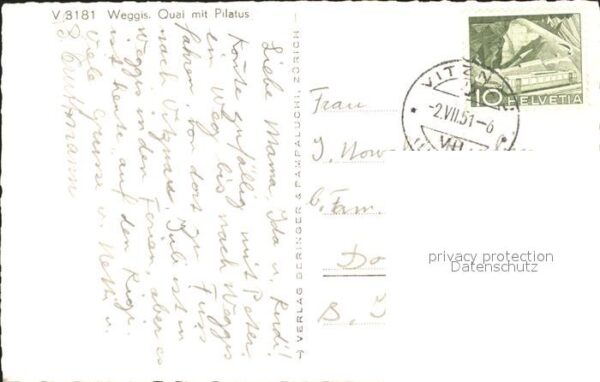 V 3181 Weggis. Quai mit Pilatus
Liebe Mama, Ida u. Ruedi!
Konte zufällig mit Peter
ein Weg bis nach Weggis
fahren, von dort zu Fuss
nach Vitznau. Juli ist in
Weggis in den Ferien, aber es
ist heute auf den Rigi.
Viele Grüsse v. Netti u.
VERLAG BERINGER & PAMPALUCHI, ZÜRICH
VITZNAU
-2.VII.51-6
10 HELVETIA
Frau
J.
b. Fam.
Do
privacy protection
Datenschutz